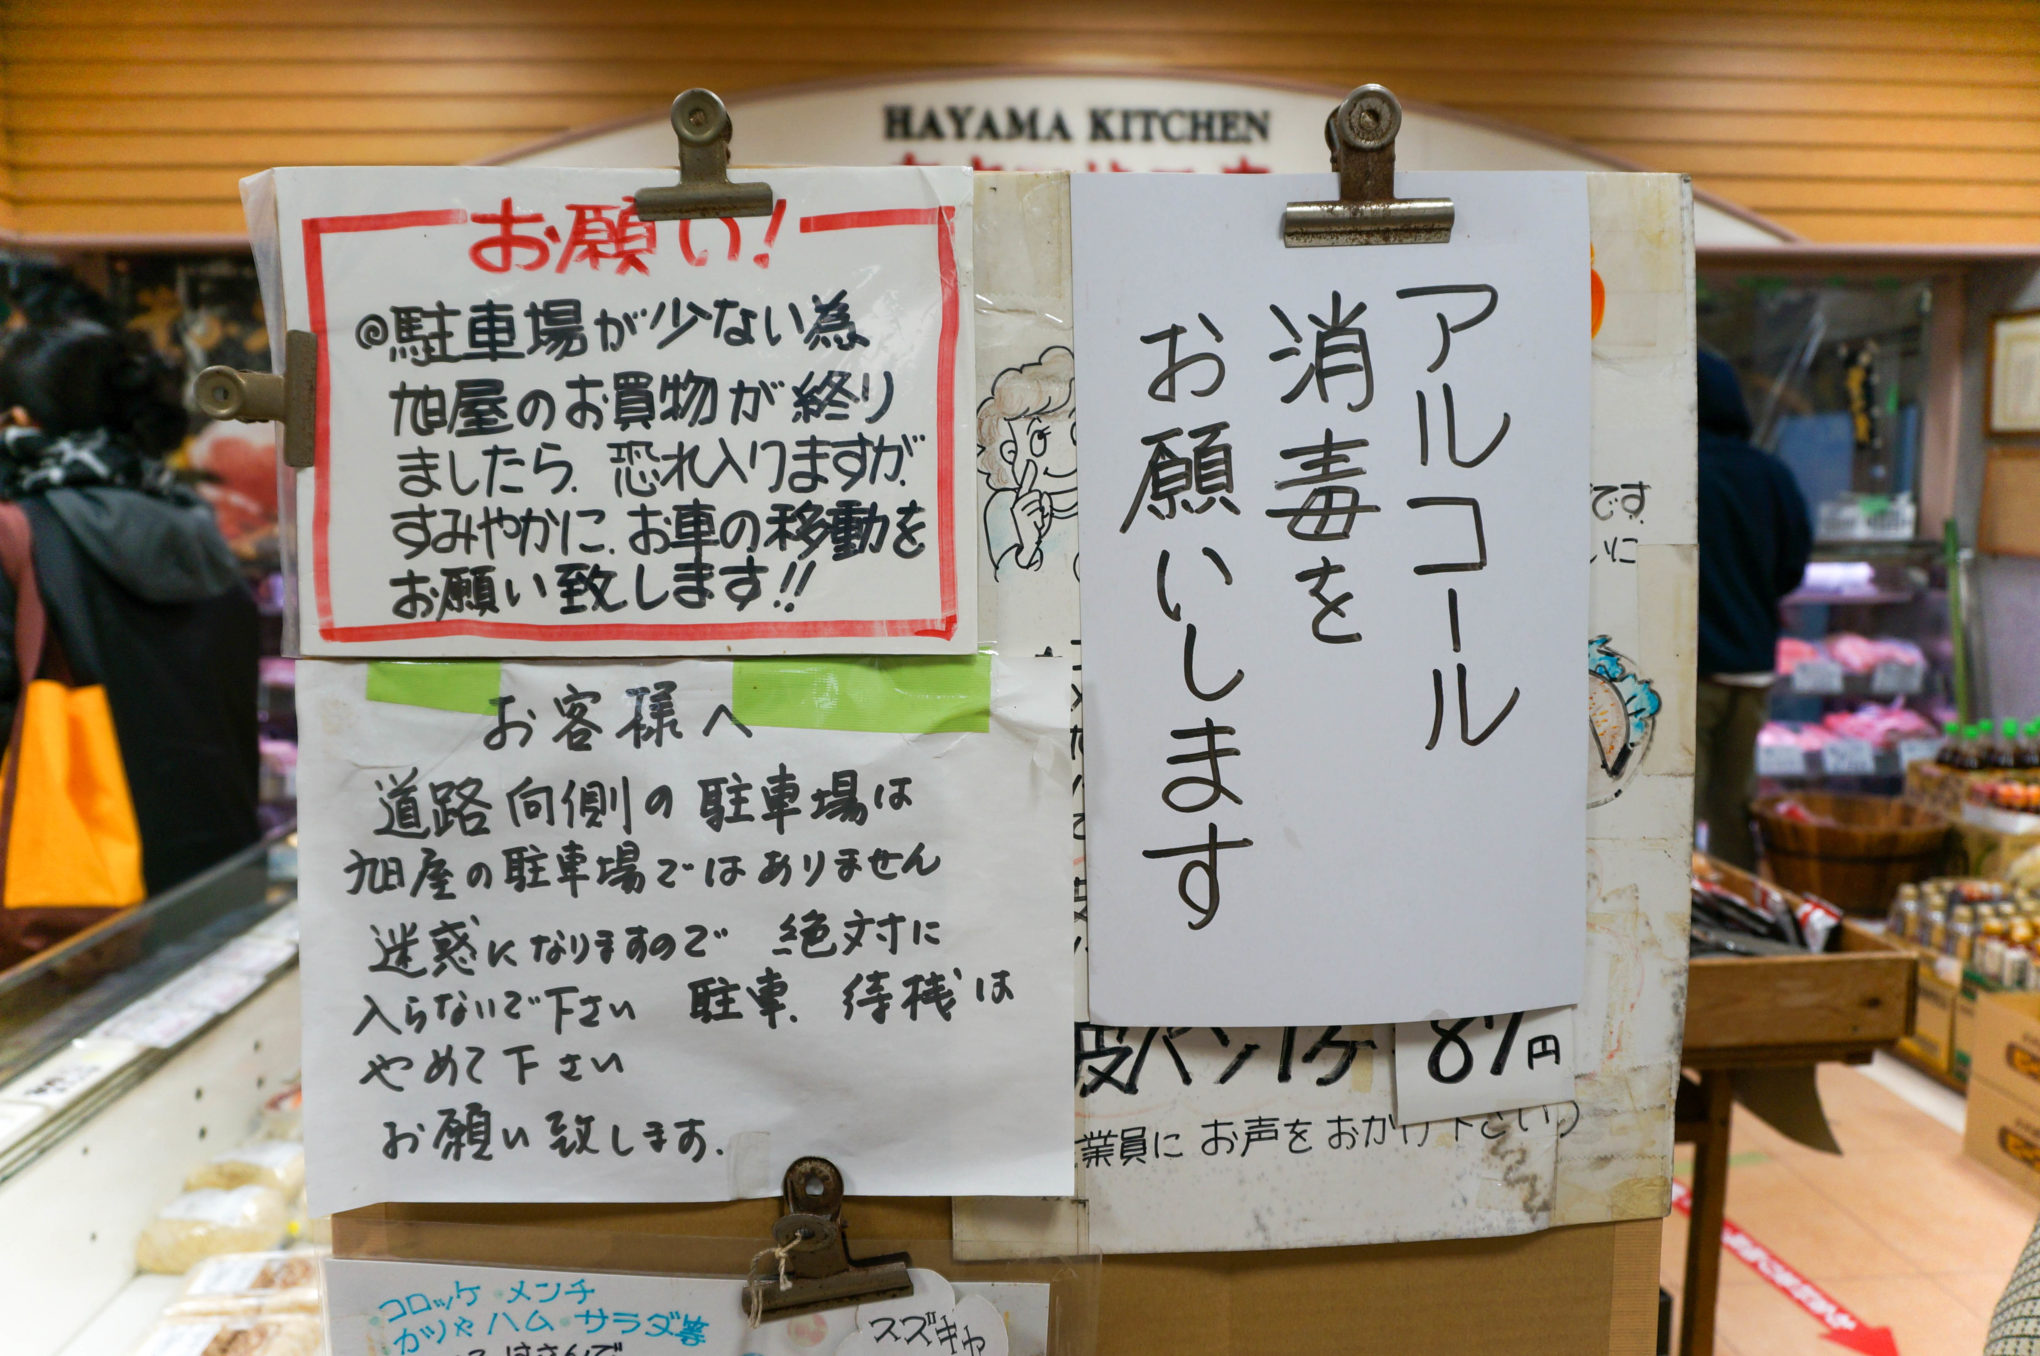 HAYAMA KITCHEN
お願い!
◎駐車場が少ない為
旭屋のお買物が終り
ましたら、恐れ入りますが、
すみやかに、お車の移動を
お願い致します!!
お客様へ
道路向側の駐車場は
旭屋の駐車場ではありません
迷惑になりますので 絶対に
入らないで下さい 駐車、待機は
やめて下さい
お願い致します。
アルコール
消毒を
お願いします
です
いに
皮パン1ケ 87円
業員にお声をおかけ下さい)
コロッケ・メンチ
カツやハム・サラダ等
はさんで
スズキヤ